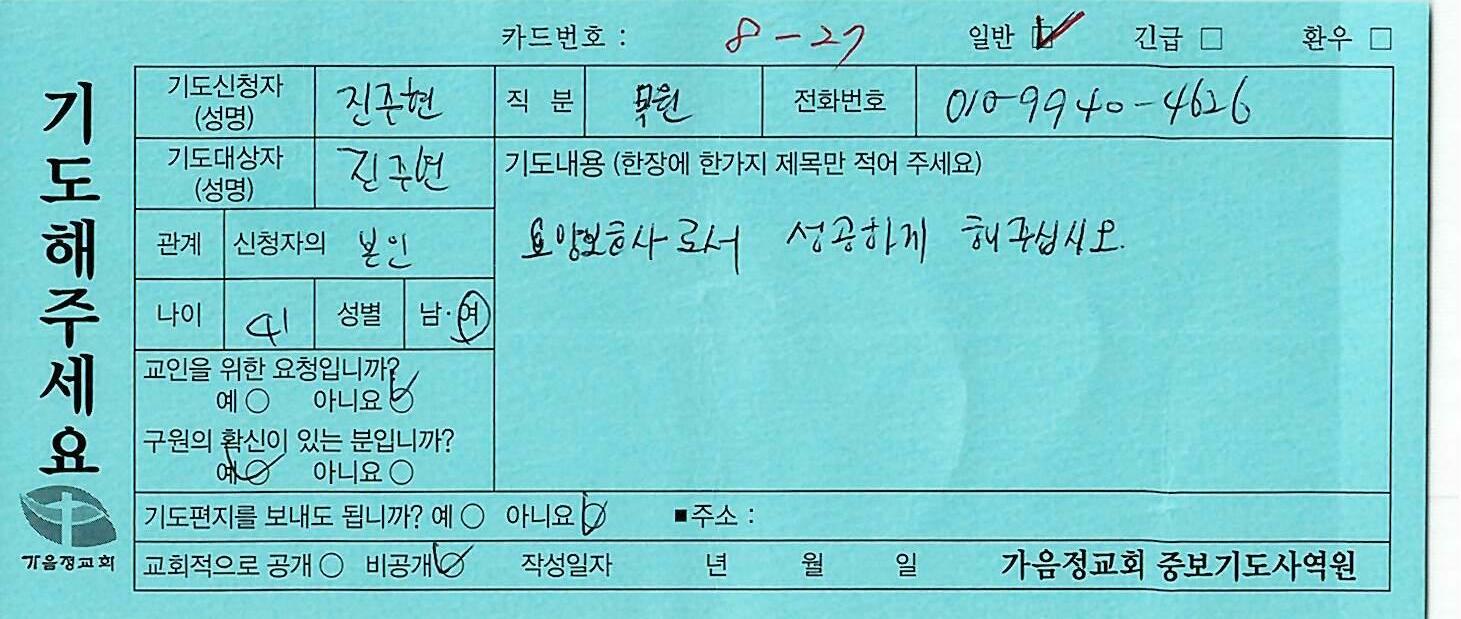 카드번호 : 8-27 일반 ☑ 긴급 □ 환우 □
기도해주세요
기도신청자 (성명) 진주현 직 분 부원 전화번호 010-9940-4626
기도대상자 (성명) 진주현 기도내용 (한장에 한가지 제목만 적어 주세요)
요양보호사로서 성공하게 해주십시오.
관계 신청자의 본인
나이 41 성별 남·여
교인을 위한 요청입니까?
예○ 아니요○
구원의 확신이 있는 분입니까?
예○ 아니요○
기도편지를 보내도 됩니까? 예○ 아니요○ ■주소 :
교회적으로 공개○ 비공개○ 작성일자 년 월 일 가음정교회 중보기도사역원
가음정교회